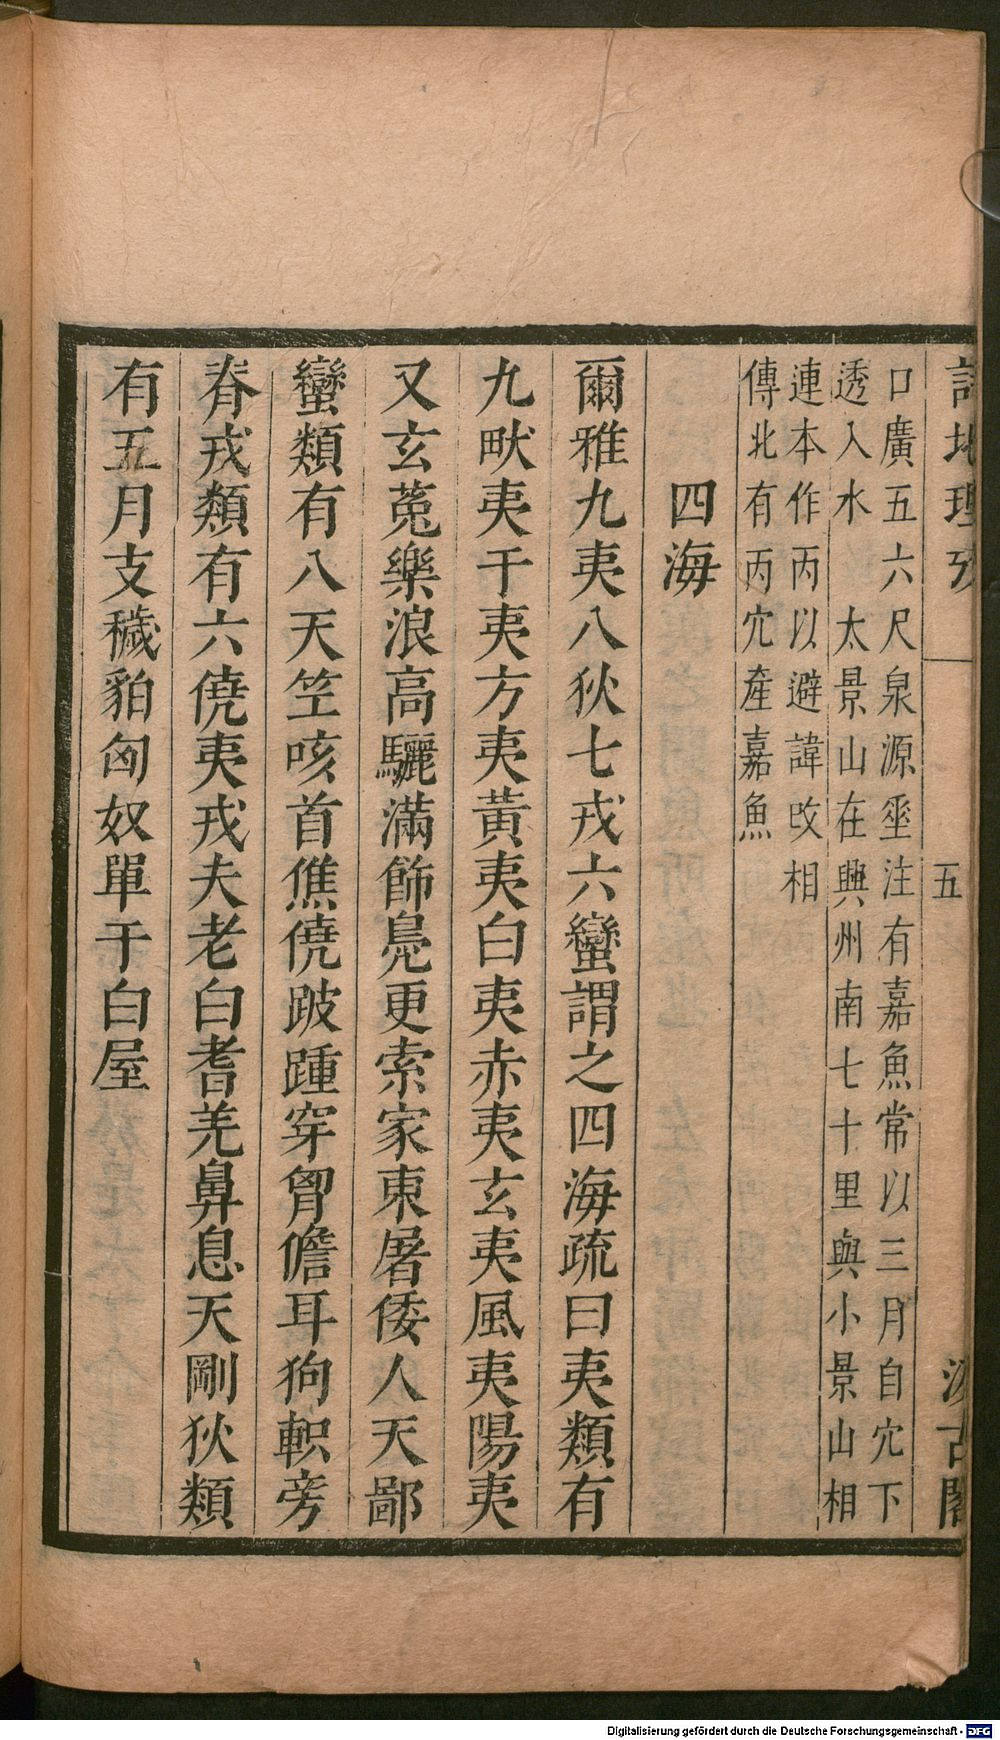 詩地理攷
五
汲古閣
口廣五六尺泉源垂注有嘉魚常以三月自穴下
透入水 太景山在興州南七十里與小景山相
連本作丙以避諱攺相
傳北有丙穴産嘉魚
四海
爾雅九夷八狄七戎六蠻謂之四海疏曰夷類有
九畎夷干夷方夷黃夷白夷赤夷玄夷風夷陽夷
又玄菟樂浪高驪滿飾鳧更索家東屠倭人天鄙
蠻類有八天竺咳首僬僥跛踵穿胷儋耳狗軹旁
脊戎類有六僥夷戎夫老白耆羌鼻息天剛狄類
有五月支穢貊匈奴單于白屋
Digitalisierung gefördert durch die Deutsche Forschungsgemeinschaft - DFG